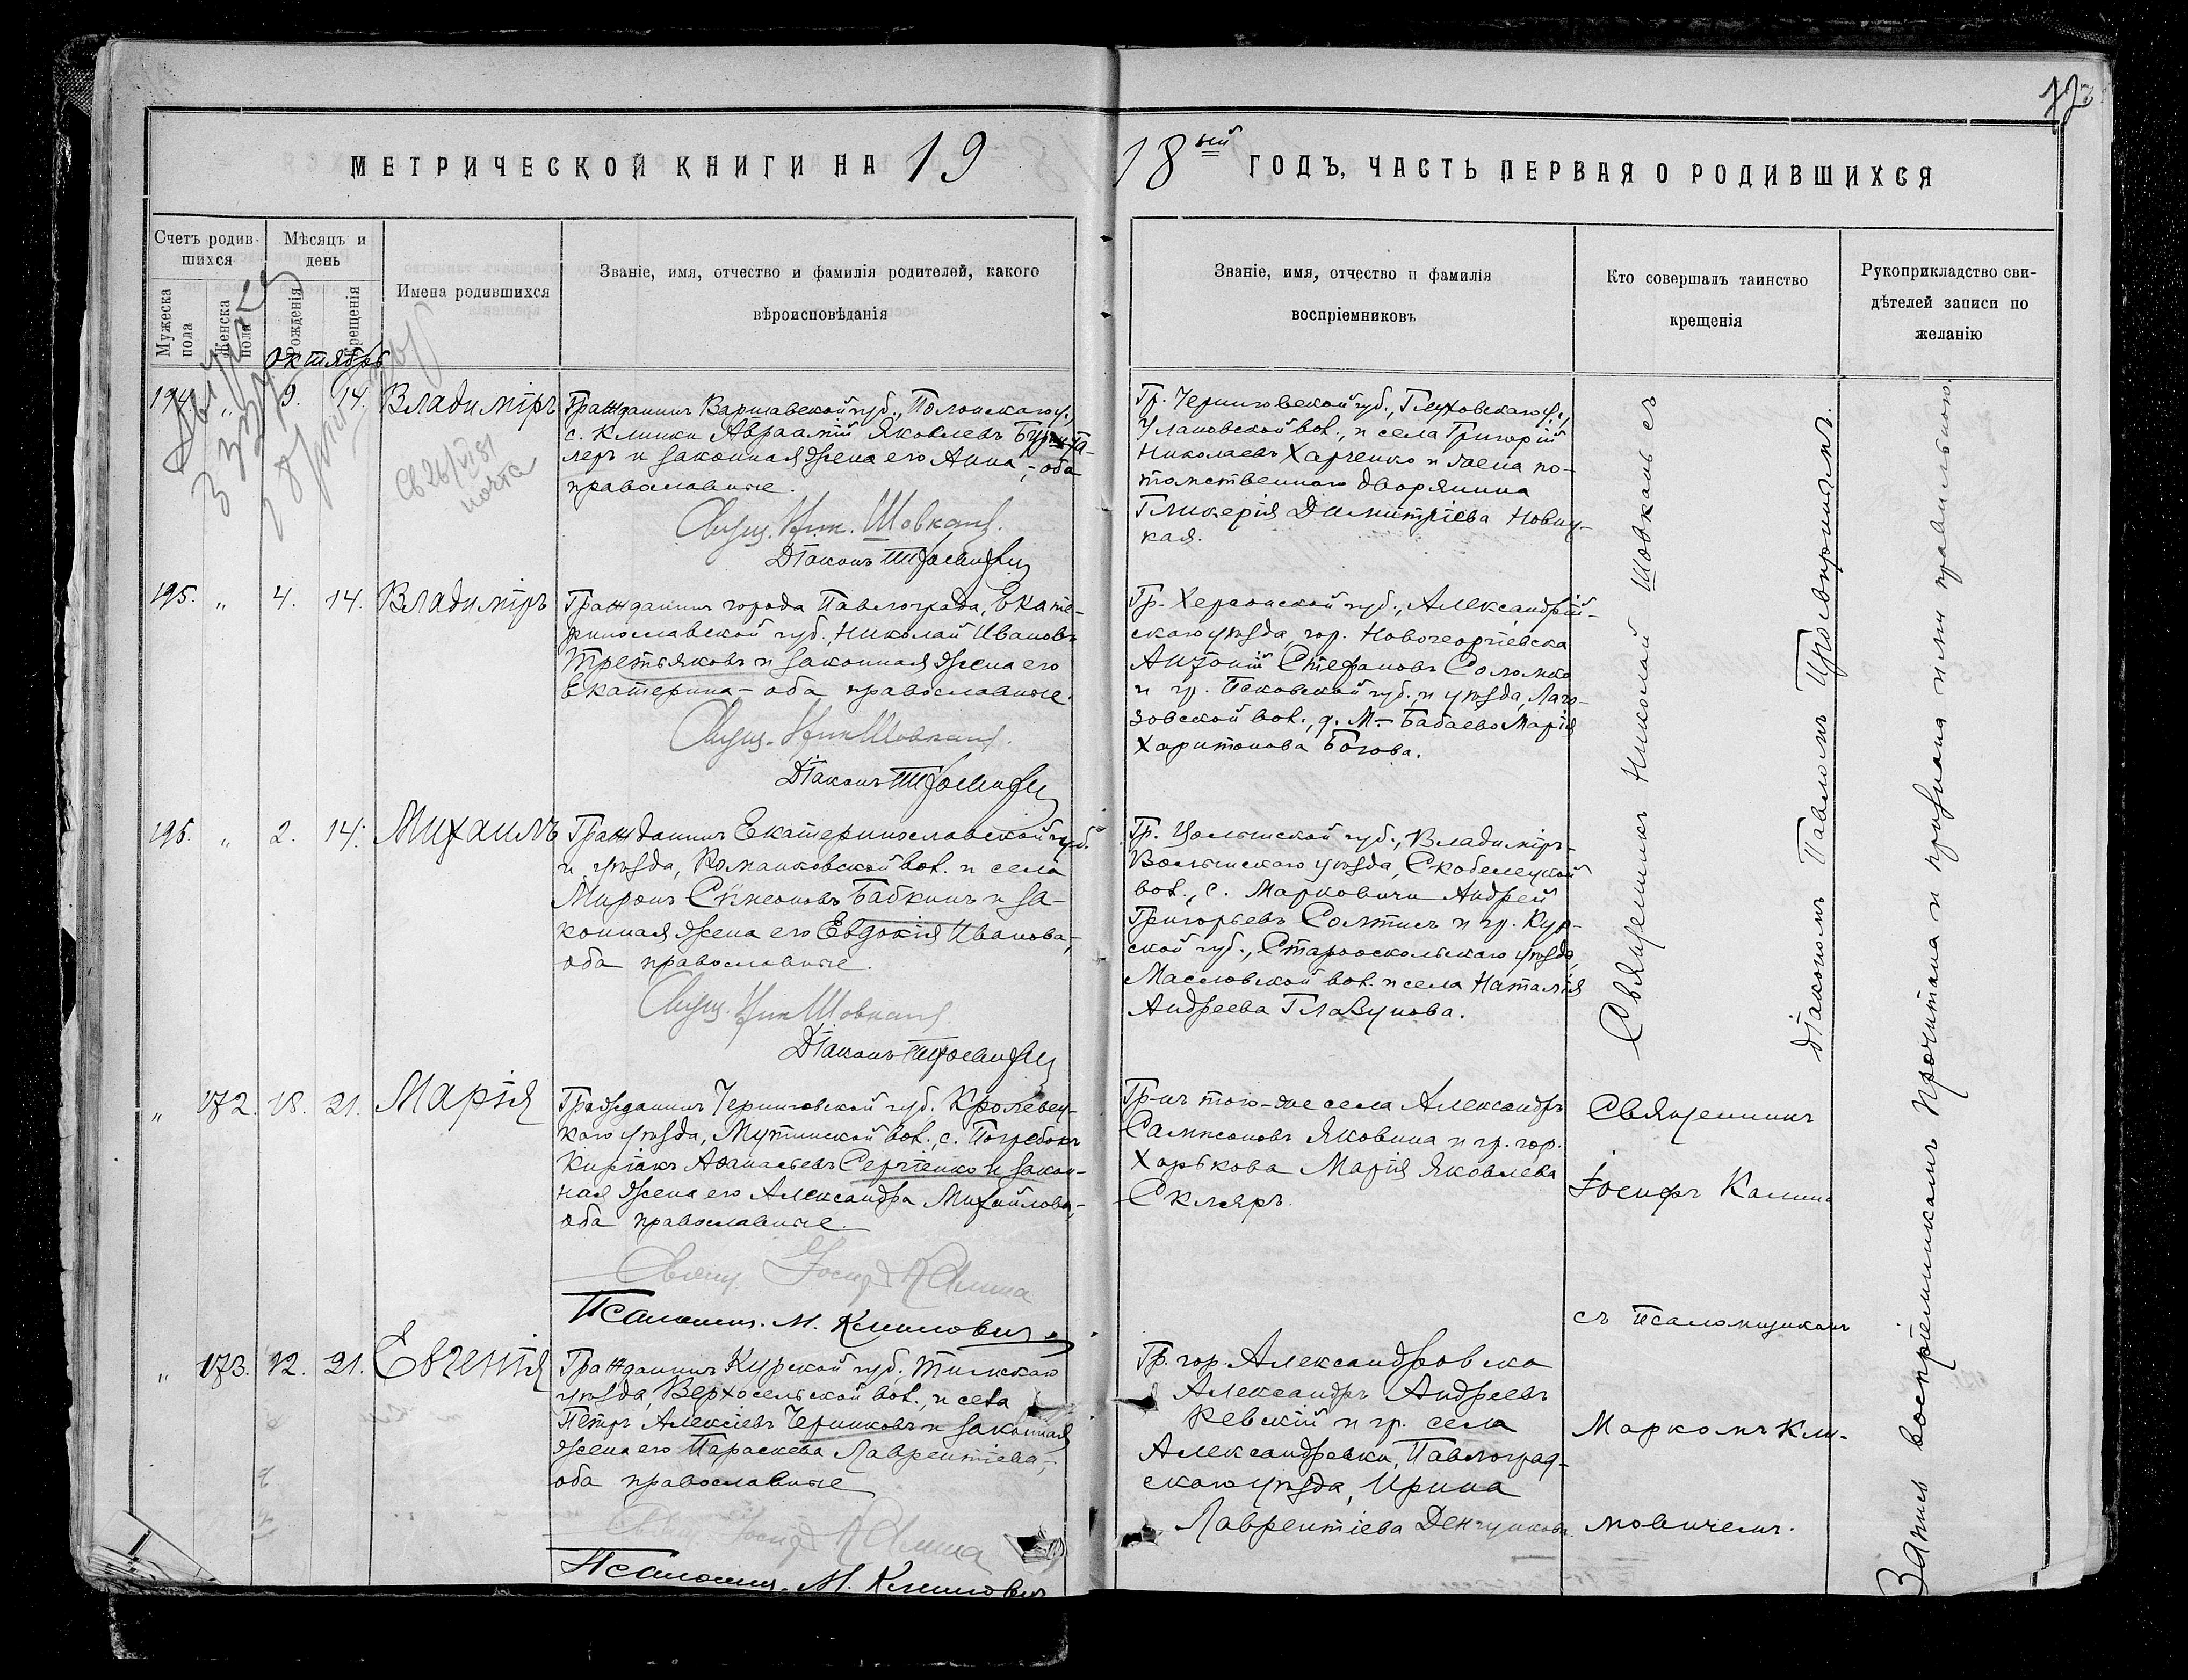 МЕТРИЧЕСКОЙ КНИГИ НА 19
18ый ГОДЪ, ЧАСТЬ ПЕРВАЯ О РОДИВШИХСЯ
Счетъ родив-
шихся
Мужеска
пола
Женска
пола
Мѣсяцъ и
день
рожденія
крещенія
Имена родившихся
Званіе, имя, отчество и фамилія родителей, какого
вѣроисповѣданія
Званіе, имя, отчество и фамилія
воспріемниковъ
Кто совершалъ таинство
крещенія
Рукоприкладство сви-
дѣтелей записи по
желанію
Октябрь
194. „ 9. 14. Владиміръ
Гражданинъ Варшавской губ.,
с. Клишки Авраамій Яковлевъ
леръ и законная жена его Анна, – оба
православные.
Свящ. Ник. Шовкань.
Діаконъ
Гр. Черниговской губ., Глуховскаго у.,
Улановской вол., и села Григорій
Николаевъ Харченко и жена по-
томственнаго дворянина
Гликерія Димитріева Новиц-
кая.
195. „ 4. 14. Владиміръ
Гражданинъ города Павлограда, Екате-
ринославской губ., Николай Ивановъ
Третьяковъ и законная жена его
Екатерина – оба православные.
Свящ. Ник Шовкань.
Діаконъ
Гр. Херсонской губ., Александрій-
скаго уѣзда, гор. Новогеоргіевска
Антоній Стефановъ Соломко
и гр. Псковской губ. и уѣзда,
зовской вол., д. М.– Бабаево Марія
Харитонова Богова.
196. „ 2. 14. Михаилъ
Гражданинъ Екатеринославской губ.
и уѣзда, Романковской вол. и села
Миронъ Симеоновъ Бабкинъ и за-
конная жена его Евдокія Иванова, –
оба православные.
Свящ. Ник Шовкань
Діаконъ
Гр. Волынской губ., Владиміръ-
Волынскаго уѣзда, Скобелецкой
вол., с. Марковичи Андрей
Григорьевъ Солтисъ и гр. Кур-
ской губ., Старооскольскаго уѣзда,
Масловской вол. и села Наталія
Андреева Глазунова.
Священникъ Николай Шовкань съ
діакономъ Павломъ
„ 172. 18. 21. Марія
Гражданинъ Черниговской губ. Кролевец-
каго уѣзда, Мутинской вол., с. Погребокъ
Киріакъ Аѳанасьевъ Сергіенко и закон-
ная жена его Александра Михайлова, –
оба православные.
Свящ. Іосифъ Калина
Псаломщ. М. Климовичъ
Гр-нъ того-же села Александръ
Сампсоновъ Яковина и гр. гор.
Харькова Марія Яковлева
Скляръ.
Священникъ
Іосифъ Калина
съ Псаломщикомъ
Маркомъ Кли-
мовичемъ.
„ 173. 12. 21. Евгенія
Гражданинъ Курской губ. Тимскаго
уѣзда, Верхосельской вол., и села
Петръ Алексіевъ Черниковъ и законная
жена его Параскева Лаврентіева, –
оба православные
Свящ Іосифъ Калина
Псаломщ. М. Климовичъ
Гр. гор. Александровска
Александръ Андреевъ
Кевскій и гр. села
Александровки, Павлоград-
скаго уѣзда, Ирина
Лаврентіева
Запись воспріемникамъ прочитана и признана ими правильною.